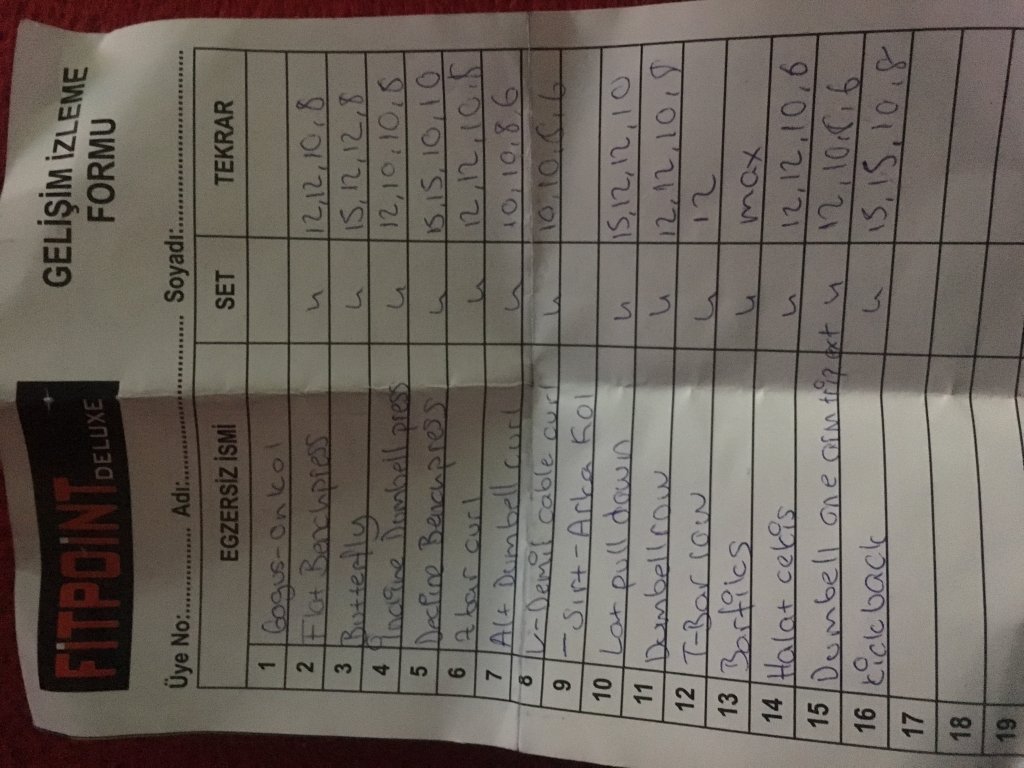 FİTPOİNT
DELUXE
GELİŞİM İZLEME
FORMU
Üye No:........... Adı:........................ Soyadı:........................
EGZERSİZ İSMİ SET TEKRAR
1 Gogus-onkol
2 Flat Benchpress 4 12,12,10,8
3 Butterfly 4 15,12,12,8
4 İncline Dumbell press 4 12,10,10,8
5 Decline Benchpress 4 15,15,10,10
6 Z bar curl 4 12,12,10,8
7 Alt Dumbell curl 4 10,10,8,6
8 V-Demir cable curl 4 10,10,8,6
9 - Sırt-Arka Kol
10 Lat pull down 4 15,12,12,10
11 Dumbell row 4 12,12,10,8
12 T-Bar row 4 12
13 Barfiks 4 max
14 Halat cekis 4 12,12,10,8
15 Dumbell one arm trip ext 4 12,10,8,6
16 Kickback 4 15,15,10,8
17
18
19